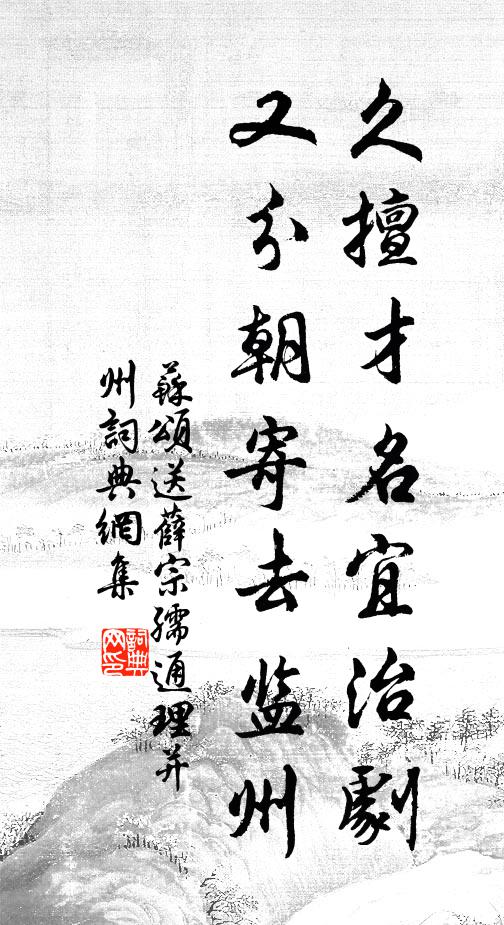 久擅才名宜治劇
又分朝寄去监州
蘇頌送薛宗孺通理并
州詞典網集
詞典網印